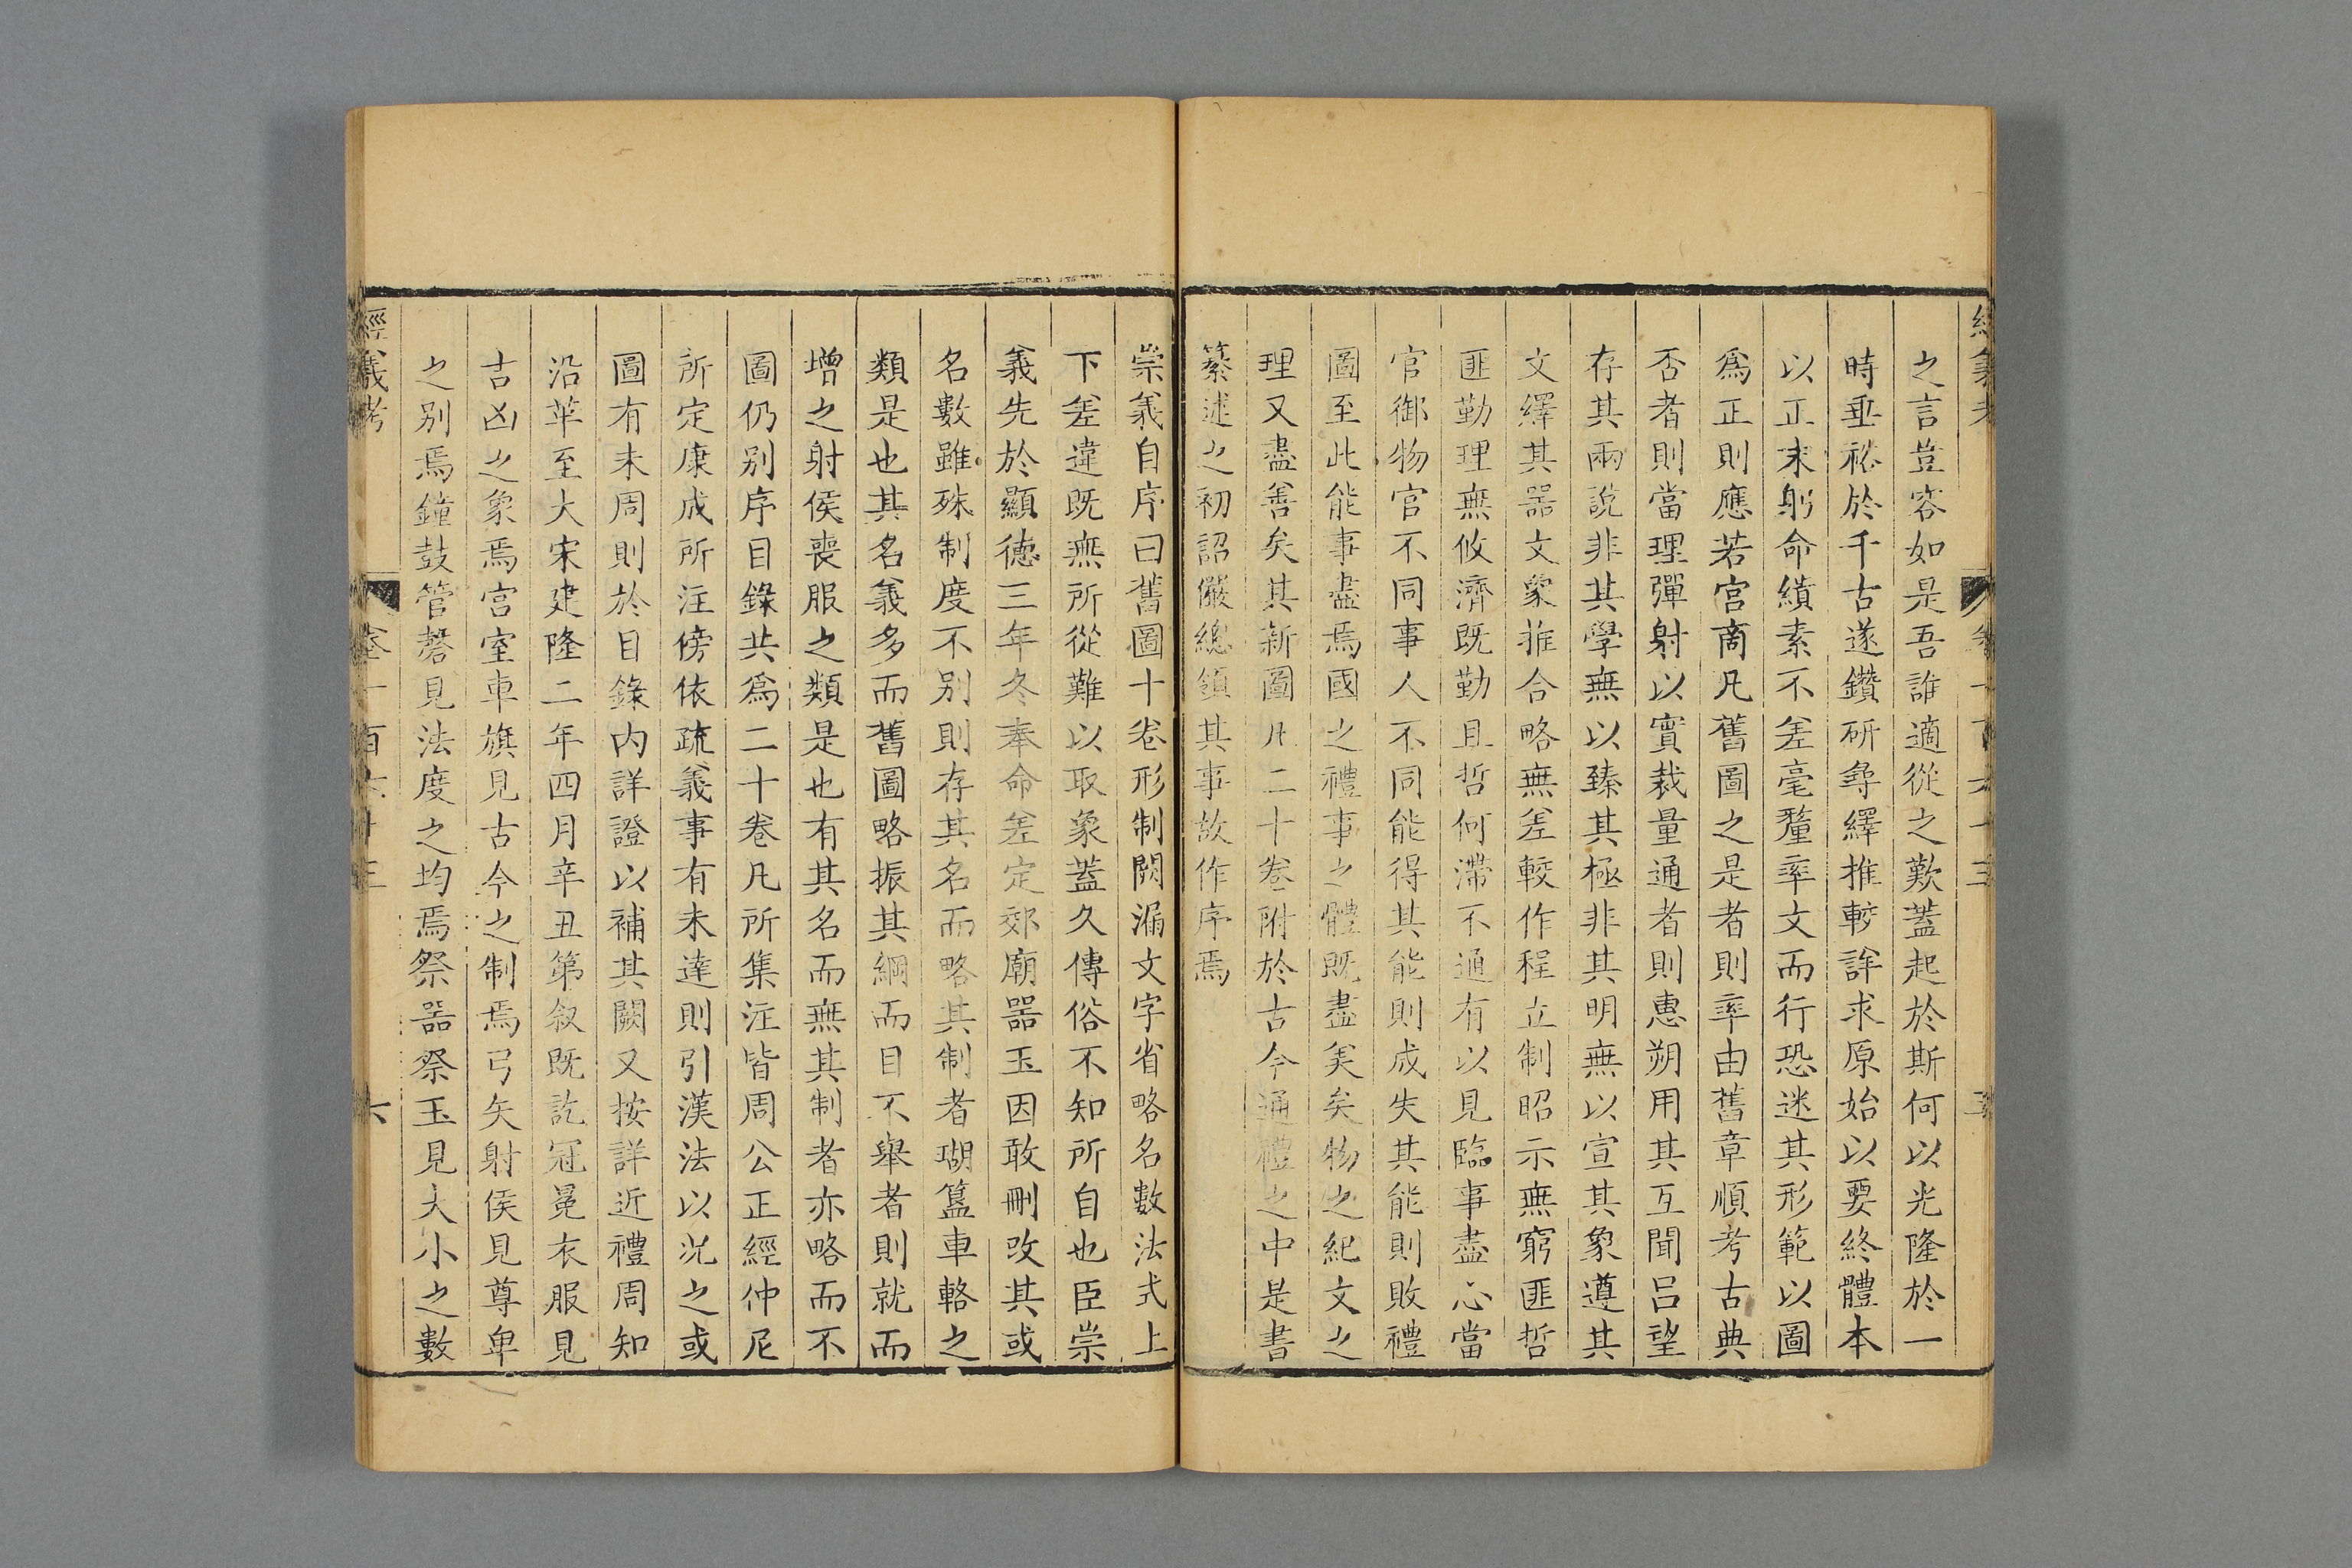 經義考
卷一百六十三
五
之言豈容如是吾誰適從之歎蓋起於斯何以光隆於一
時垂祕於千古遂鑽研尋繹推較詳求原始以要終體本
以正末躬命繢素不差毫釐率文而行恐迷其形範以圖
爲正則應若宮商凡舊圖之是者則率由舊章順考古典
否者則當理彈射以實裁量通者則惠朔用其互聞呂望
存其兩說非其學無以臻其極非其明無以宣其象遵其
文繹其器文象推合略無差較作程立制昭示無窮匪哲
匪勤理無攸濟既勤且哲何滯不通有以見臨事盡心當
官御物官不同事人不同能得其能則成失其能則敗禮
圖至此能事盡焉國之禮事之體既盡美矣物之紀文之
理又盡善矣其新圖凡二十卷附於古今通禮之中是書
纂述之初詔儼總領其事故作序焉
崇義自序曰舊圖十卷形制闕漏文字省略名數法式上
下差違既無所從難以取象蓋久傳俗不知所自也臣崇
義先於顯德三年冬奉命差定郊廟器玉因敢刪改其或
名數雖殊制度不别則存其名而略其制者瑚簋車輅之
類是也其名義多而舊圖略振其綱而目不舉者則就而
增之射侯喪服之類是也有其名而無其制者亦略而不
圖仍别序目錄共爲二十卷凡所集注皆周公正經仲尼
所定康成所注傍依疏義事有未達則引漢法以況之或
圖有未周則於目錄内詳證以補其闕又按詳近禮周知
沿革至大宋建隆二年四月辛丑第叙既訖冠冕衣服見
吉凶之象焉宮室車旗見古今之制焉弓矢射侯見尊卑
之别焉鐘鼓管磬見法度之均焉祭器祭玉見大小之數
經義考
卷一百六十三
六